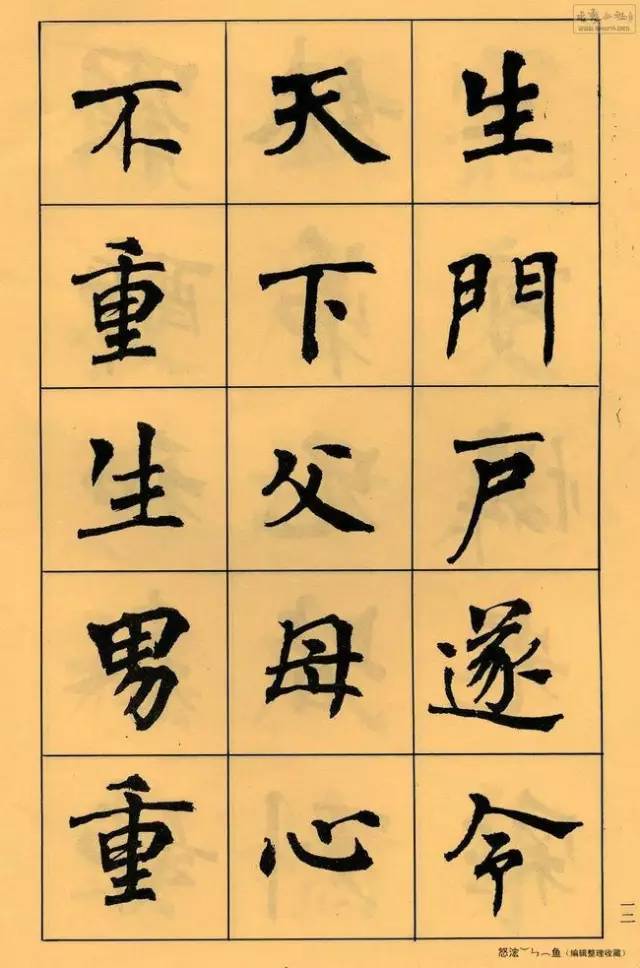 生門戶遂令
天下父母心
不重生男重
一二
怒浤︶ㄣ︵鱼（编辑整理收藏）